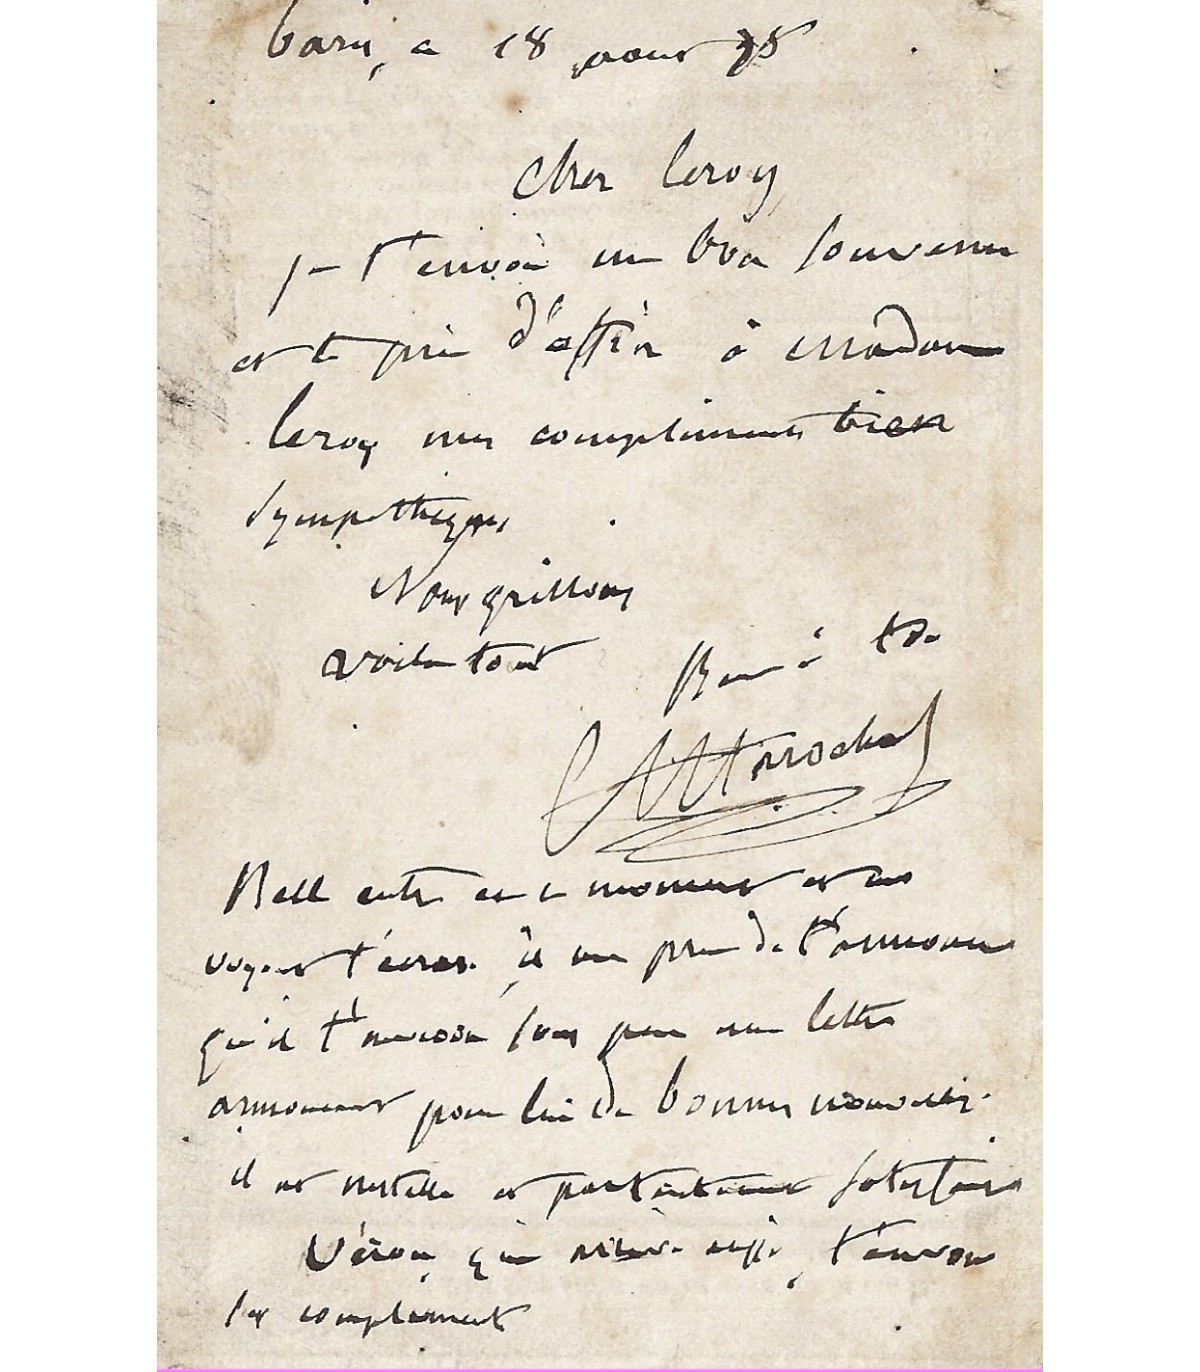 Paris, ce 18 aout 75
cher leroy,
je t'envoie un bon souvenir
et te prie d'offrir à madame
leroy mes compliments bien
sympathiques,
Nous grillons
voila tout
Bien à toi
Bell entre en ce moment et me
voyant t'écrire. il me prie de t'annoncer
qu'il t'enverra sous peu une lettre
annonçant pour lui de bonnes nouvelles.
il est installé et parfaitement satisfait
Véron, qui arrive aussi, t'envoie
ses compliment